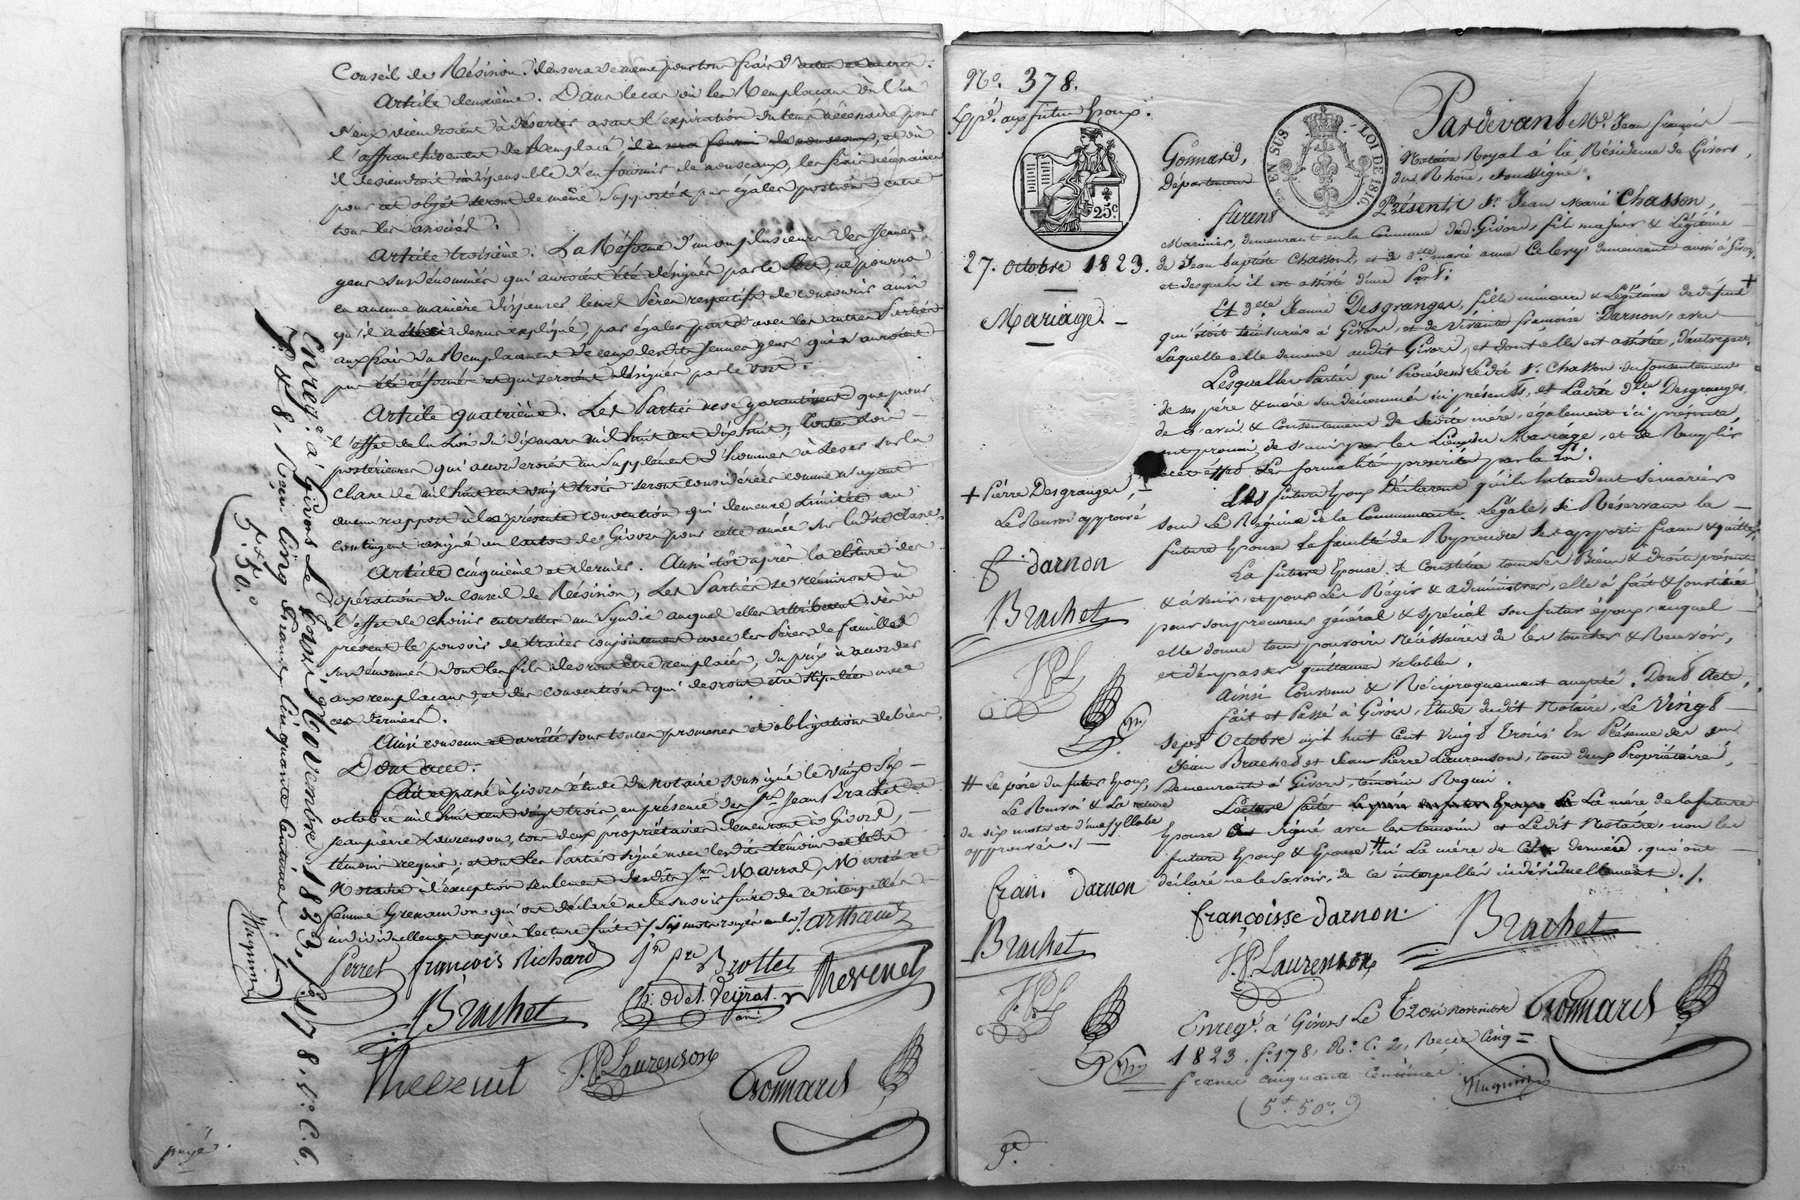 Conseil de Révision. Il en sera de même pour tous frais d'actes et autres.
Article deuxième. Dans le cas où les Remplaçans ou l'un
d'eux viendroient à déserter avant l'expiration du tems nécessaire pour
l'affranchissement du Remplacé il en sera fourni de nouveaux, et où
il deviendroit indispensable d'en fournir de nouveaux, les frais nécessaires
pour cet objet seront de même supportés par égales portions entre
tous les associés.
Article troisième. La Réforme d'un ou plusieurs des jeunes
gens susdénommés qui auroient été désignés par le sort, ne pourra
en aucune manière dispenser leurs Pères respectifs de concourir ainsi
qu'il a été ci dessus expliqué, par égales parts avec les autres Parties
aux frais du Remplacement de ceux desdits jeunes gens qui n'auroient
pas été réformés et qui seroient désignés par le sort.
Article quatrième. Les Parties ne se garantissent que pour
l'effet de la Loi du dix mars mil huit cent dix huit, toutes Lois
postérieures qui accorderoient un supplément d'hommes à lever sur la
classe de mil huit cent vingt trois seront considérées comme n'ayant
aucun rapport à la présente convention qui demeure limitée au
contingent assigné au canton de Givors pour cette année sur ladite classe.
Article cinquième et dernier. Aussitôt après la clôture des
opérations du Conseil de Révision, les Parties se réuniront à
l'effet de choisir entr'elles un Syndic auquel elles attribuent dès à
présent le pouvoir de traiter conjointement avec les Pères de familles
susdénommés dont les fils devront être remplacés, du prix à accorder
aux remplaçans, et des conventions qui devront être stipulées avec
ces derniers.
Ainsi convenu et arrêté sous toutes promesses et obligations de biens.
Dont acte.
Fait et passé à Givors étude du notaire soussigné le vingt six
octobre mil huit cent vingt trois, en présence des Srs Jean Brachet et
Jean pierre Laurenson, tous deux propriétaires demeurant à Givors,
témoins requis; et ont les Parties signé avec lesdits témoins et ledit
Notaire à l'exception seulement desdits Srs Marral,
femme qui ont déclaré ne le savoir faire de ce interpellés
individuellement après lecture faite. Six mots rayés nuls.
Perret françois Richard Brottet
Brachet Thevenet
Thevenet J.P. Laurenson Gonnard
Enregé. à Givors Le Trois Novembre 1823, fo. 178, Vo. C. 6,
7. & 8. Reçu Cinq francs Cinquante Centimes.
5f. 50c.
payé.
No. 378.
Expéd. aux futurs Époux.
25c.
27. octobre 1823.
Mariage.
+ Pierre Desgranges,
Le Renvoi approuvé
f. darnon
Brachet
J.P.L
# Le père du futur Époux,
Le Renvoi & la rature
de six mots et d'une syllabe
approuvés./.
fran. darnon
Brachet
J.P.L
EN SUS LOI DE 1816.
Pardevant Me. Jean françois
Gonnard, Notaire Royal à la Résidence de Givors,
Département du Rhône, soussigné.
furent Présents Sr. Jean Marie Chasson,
Marinier, demeurant en la Commune dud. Givors, fils majeur & Légitime
de Jean baptiste Chasson, et de de. marie anne Celery demeurant aussi à Givors,
et desquels il est assisté d'une Part;
Et Dlle Jeanne Desgranges, fille mineure & Légitime de défunt +
qui étoit teinturier à Givors, et de Vivante françoise Darnon, avec
Laquelle elle demeure audit Givors, et dont elle est assistée, d'autre part.
Lesquelles Parties qui Procèdent Ledit Sr. Chasson du Consentement
de ses père & mère susdénommés ici présents, et Ladite dlle Desgranges,
de l'avis & Consentement de sadite mère, également ici présente,
ont promis de s'unir par les Liens du Mariage, et de Remplir
à cet effet Les formalités prescrites par la Loi.
Les futurs Époux Déclarent qu'ils entendent se marier
sous Le Régime de la Communauté Légale, se Réservant la
future Épouse La faculté de Reprendre ses apports francs & quittes.
La future Épouse se Constitue tous ses Biens & droits présents
& à venir, et pour Les Régir & administrer, elle a fait & Constitué
pour son procureur général & spécial son futur époux auquel
elle donne tous pouvoirs nécessaires de les toucher & Recevoir,
et d'en passer quittance valable.
Ainsi Convenu & Réciproquement accepté. Dont Acte,
fait et Passé à Givors, Etude dudit Notaire, Le Vingt
sept Octobre mil huit Cent Vingt trois; En Présence des srs.
Jean Brachet et Jean Pierre Laurenson, tous deux Propriétaires,
Demeurants à Givors, témoins Requis.
Lecture faite La mère de la future
Épouse a signé avec les témoins et Ledit Notaire, non les
futurs Époux & Épouse, # ni La mère de Ce dernier, qui ont
déclaré ne le savoir, de ce interpellés individuellement ./.
françoisse darnon. Brachet
J.P. Laurenson
Gonnard
Enregé. à Givors Le Trois novembre
1823. fo. 178, Ro. C. 2, Reçu Cinq
francs cinquante Centimes.
(5f. 50c.)